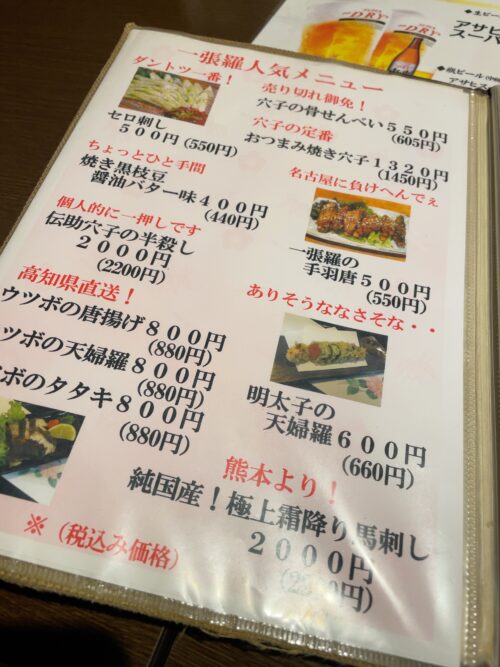 一張羅人気メニュー
ダントツ一番！
セロ刺し
５００円(550円)
ちょっとひと手間
焼き黒枝豆
醤油バター味４００円
(440円)
個人的に一押しです
伝助穴子の半殺し
２０００円
(2200円)
高知県直送！
ウツボの唐揚げ８００円
(880円)
ツボの天婦羅８００円
(880円)
ボのタタキ８００円
(880円)
売り切れ御免！
穴子の骨せんべい５５０円
(605円)
穴子の定番
おつまみ焼き穴子１３２０円
(1450円)
名古屋に負けへんでぇ
一張羅の
手羽唐５００円
(550円)
ありそうななさそな・・
明太子の
天婦羅６００円
(660円)
熊本より！
純国産！極上霜降り馬刺し
２０００円
※（税込み価格）
◆生ビー
アサヒ
スーパ
◆瓶ビール
アサヒス
DRY